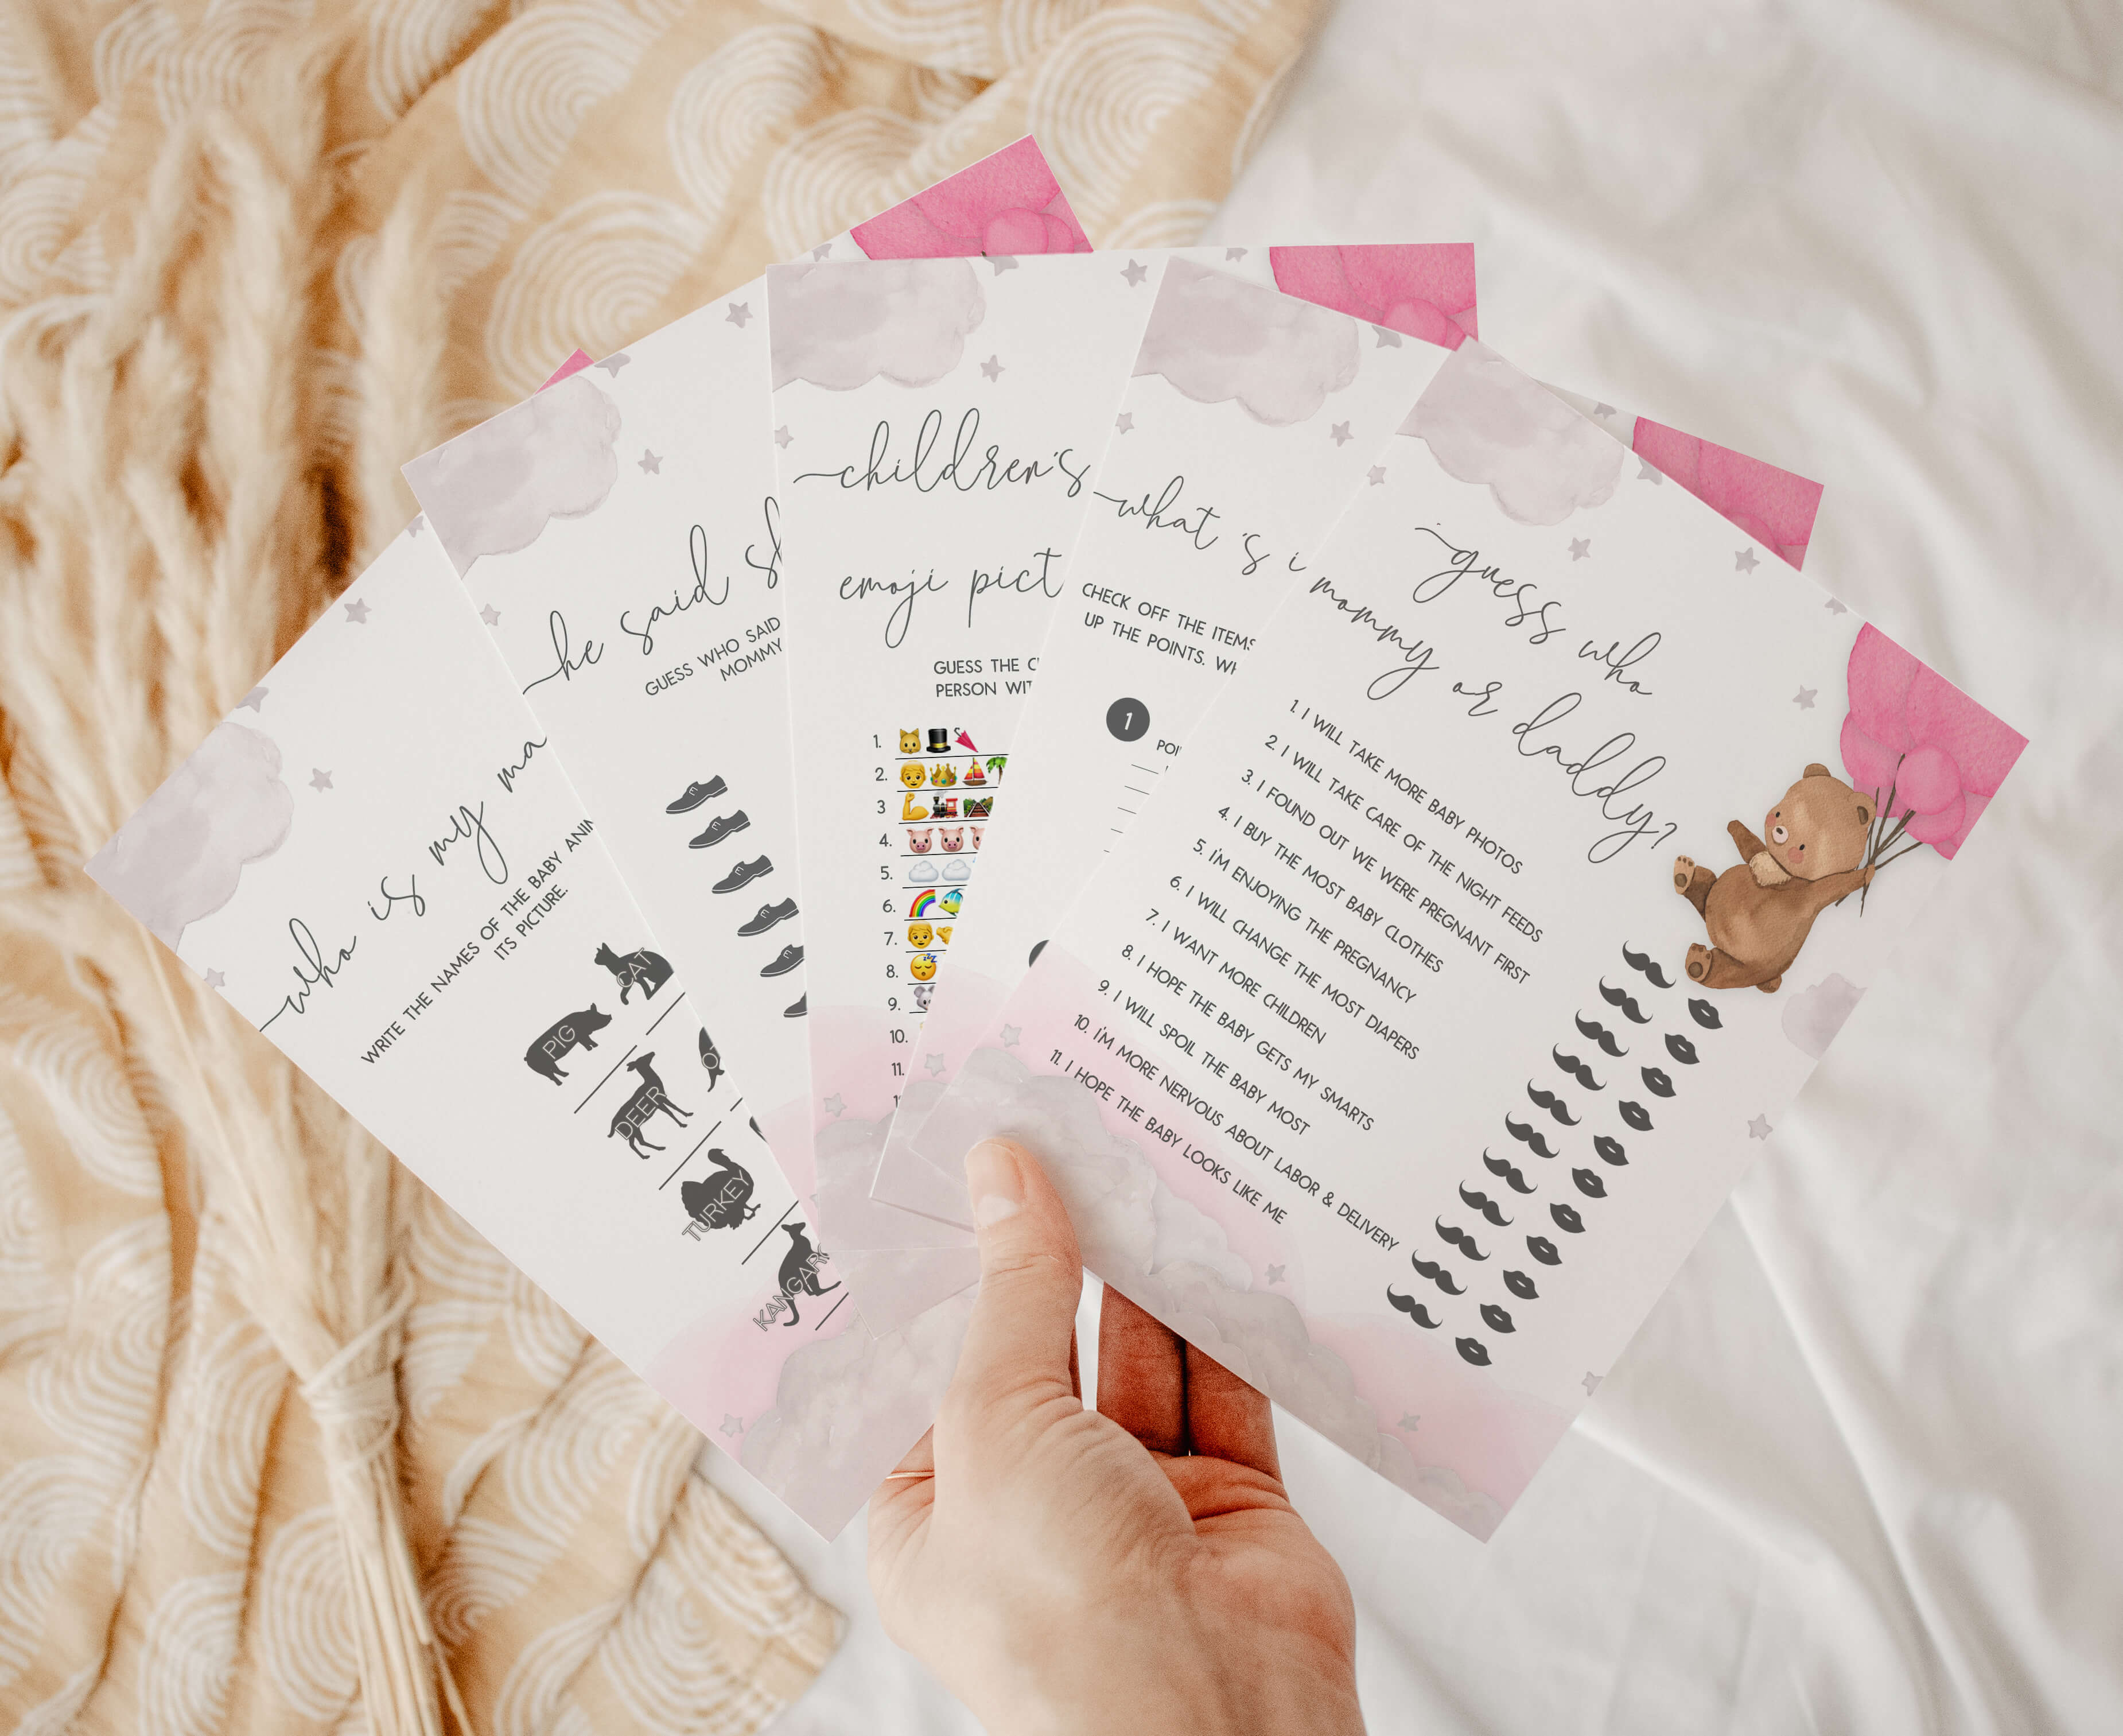 who is my ma
WRITE THE NAMES OF THE BABY ANIM
ITS PICTURE.
CAT
PIG
DEER
OT
TURKEY
KANGAR
he said sh
GUESS WHO SAID
MOMMY
children's
emoji pict
GUESS THE C
PERSON WIT
1.
2.
3
4.
5.
6.
7.
8.
9.
10.
11.
what's i
CHECK OFF THE ITEMS
UP THE POINTS. WH
1
POI
guess who
mommy or daddy?
1. I WILL TAKE MORE BABY PHOTOS
2. I WILL TAKE CARE OF THE NIGHT FEEDS
3. I FOUND OUT WE WERE PREGNANT FIRST
4. I BUY THE MOST BABY CLOTHES
5. I'M ENJOYING THE PREGNANCY
6. I WILL CHANGE THE MOST DIAPERS
7. I WANT MORE CHILDREN
8. I HOPE THE BABY GETS MY SMARTS
9. I WILL SPOIL THE BABY MOST
10. I'M MORE NERVOUS ABOUT LABOR & DELIVERY
11. I HOPE THE BABY LOOKS LIKE ME